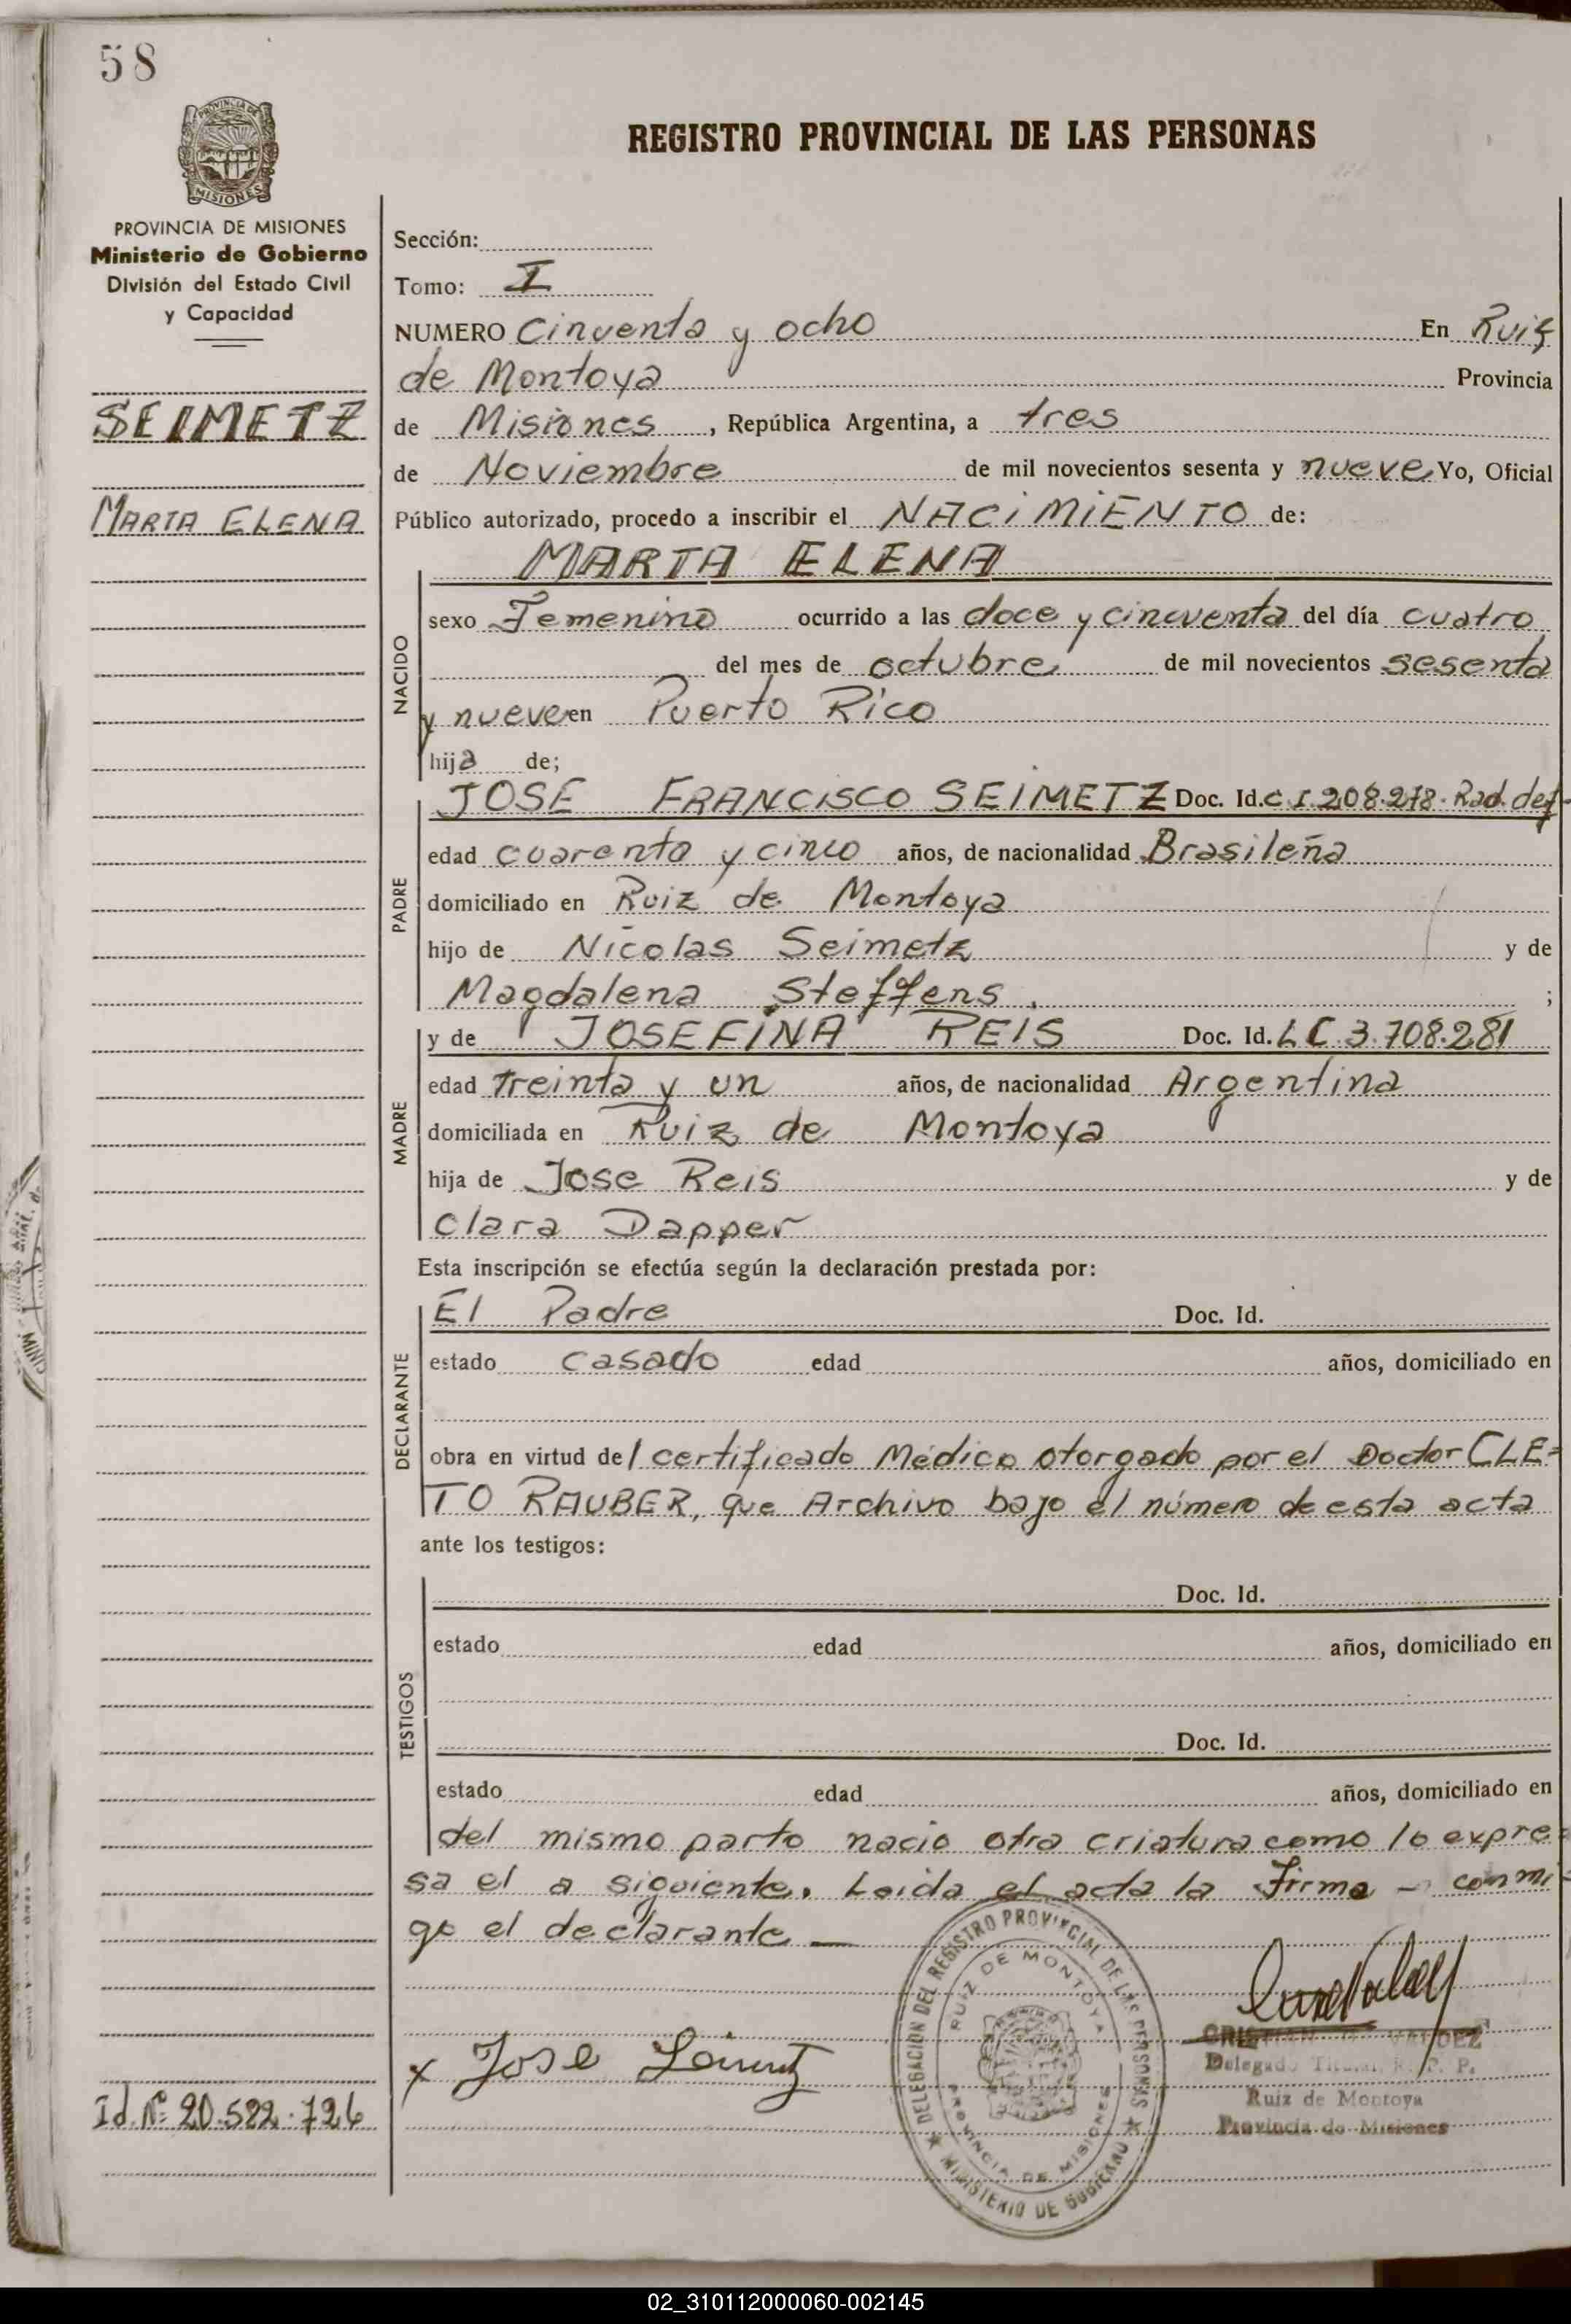 58
PROVINCIA DE
MISIONES
PROVINCIA DE MISIONES
Ministerio de Gobierno
División del Estado Civil
y Capacidad
SEIMETZ
MARTA ELENA
Id. Nº 20.522.726
REGISTRO PROVINCIAL DE LAS PERSONAS
Sección:
Tomo: I
NUMERO Cinventa y ocho En Ruiz
de Montoya Provincia
de Misiones, República Argentina, a tres
de Noviembre de mil novecientos sesenta y nueve Yo, Oficial
Público autorizado, procedo a inscribir el NACIMIENTO de:
MARTA ELENA
NACIDO
sexo Femenino ocurrido a las doce y cincuenta del día cuatro
del mes de octubre de mil novecientos sesenta
y nueve en Puerto Rico
hija de;
PADRE
JOSE FRANCISCO SEIMETZ Doc. Id. C.I. 208.278. Rad. def.
edad cuarenta y cinco años, de nacionalidad Brasileña
domiciliado en Ruiz de Montoya
hijo de Nicolas Seimetz y de
Magdalena Steffens. ;
MADRE
y de JOSEFINA REIS Doc. Id. L C. 3.708.281
edad treinta y un años, de nacionalidad Argentina
domiciliada en Ruiz de Montoya
hija de Jose Reis y de
Clara Dapper
Esta inscripción se efectúa según la declaración prestada por:
DECLARANTE
El Padre Doc. Id.
estado casado edad años, domiciliado en
obra en virtud del certificado Médico otorgado por el Doctor CLE=
TO RAUBER, que Archivo bajo el número de esta acta
ante los testigos:
TESTIGOS
Doc. Id.
estado edad años, domiciliado en
Doc. Id.
estado edad años, domiciliado en
del mismo parto nacio otra criatura como lo expre=
sa el a siguiente. Leida el acta la Firma - conmi=
go el declarante —
DELEGACION DEL REGISTRO PROVINCIAL DE LAS PERSONAS
RUIZ DE MONTOYA
PROVINCIA DE MISIONES
★ MINISTERIO DE GOBIERNO ★
x Jose
VALDEZ
Delegado Titular R. P. P.
Ruiz de Montoya
Provincia de Misiones
02_310112000060-002145